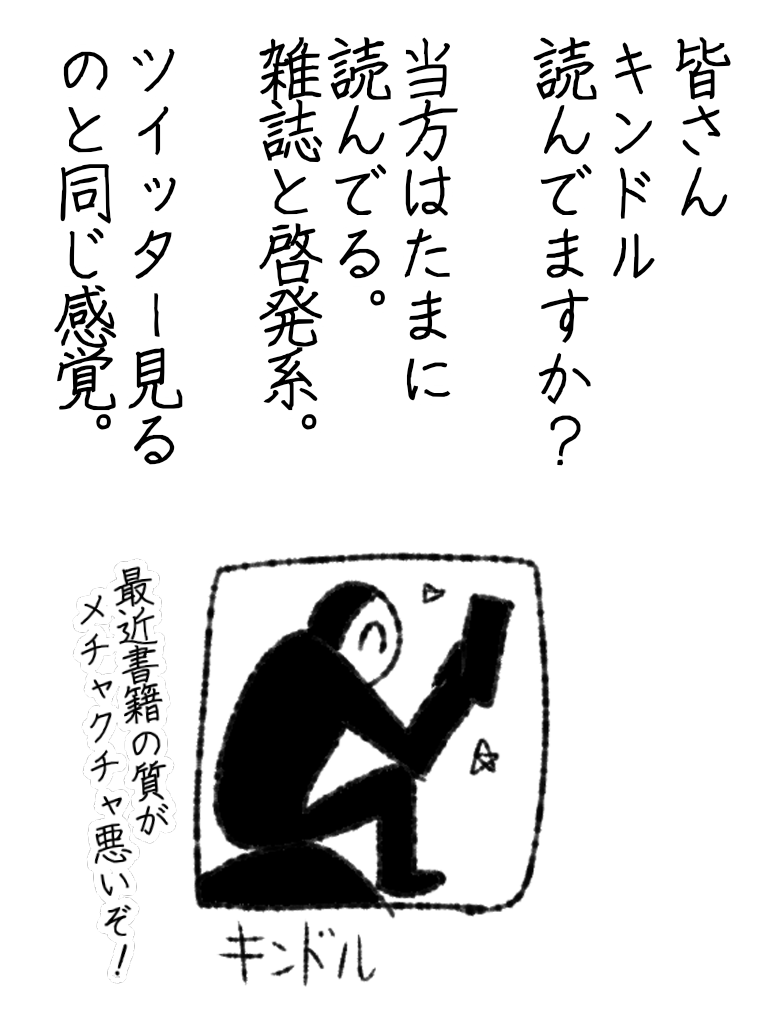 皆さん
キンドル
読んでますか？
当方はたまに
読んでる。
雑誌と啓発系。
ツイッター見る
のと同じ感覚。
最近書籍の質が
メチャクチャ悪いぞ！
キンドル